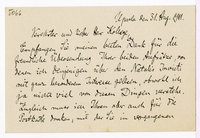 Upsala den 31. Aug. 1911.
Verehrter und lieber Herr Kollege,
Empfangen Sie meinen besten Dank für die
freundliche Übersendung Ihrer beiden Aufsätze von
denen ich denjenigen über den Natalis Invicti
mit ganz besonderem Interesse gelesen, obwohl ich
ja nicht viel von diesen Dingen verstehe.
Zugleich muss ich Ihnen aber auch für die
Postkarte danken, mit der Sie im vergangenen